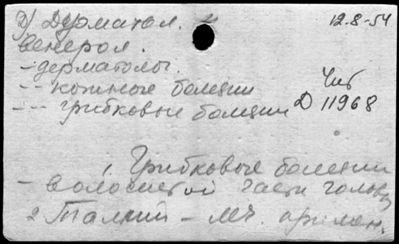 2) Дерматол. и
12.8-54
венерол.
- дерматозы.
-- кожные болезни
--- грибковые болезни
Чит
Д 11968
1. Грибковые болезни
- волосистой части головы
2 Таллий - мч.